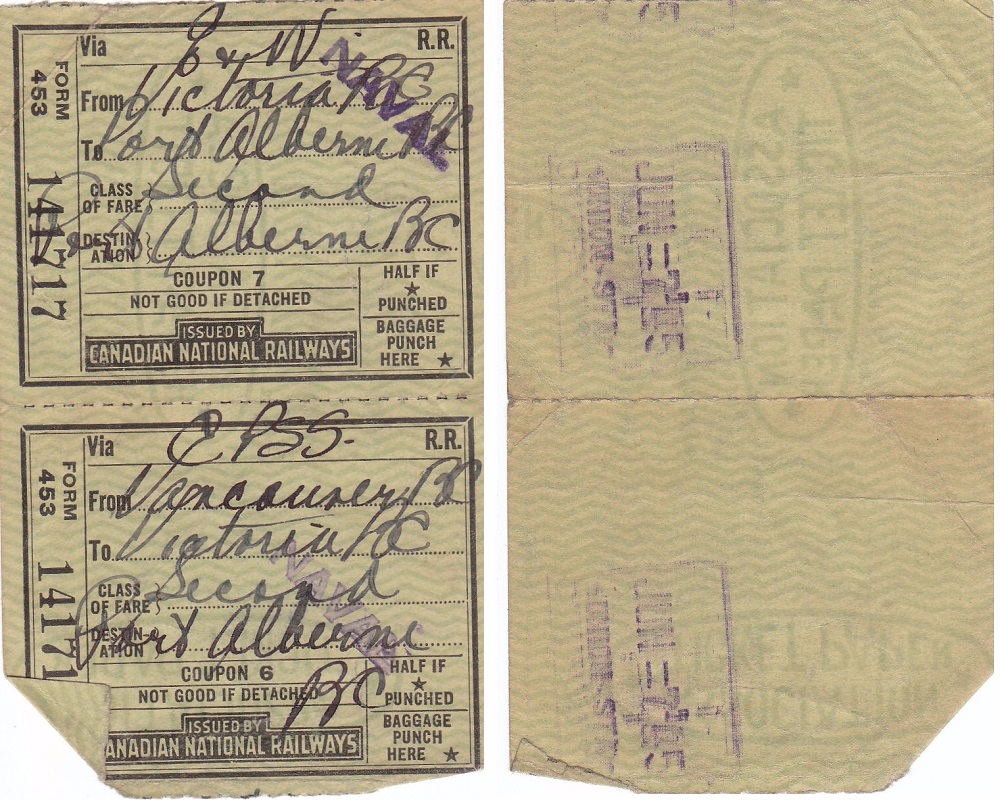 Via E & N R.R.
NAVAL
FORM 453
14717
From Victoria BC
To Port Alberni BC
CLASS OF FARE Second
DESTINATION Port Alberni BC
COUPON 7
NOT GOOD IF DETACHED
HALF IF
PUNCHED
BAGGAGE
PUNCH
HERE
ISSUED BY
CANADIAN NATIONAL RAILWAYS
Via CPSS. R.R.
FORM 453
1471
From Vancouver BC
To Victoria BC
NAVAL
CLASS OF FARE Second
DESTIN-ATION Port Alberni
BC
COUPON 6
NOT GOOD IF DETACHED
HALF IF
PUNCHED
BAGGAGE
PUNCH
HERE
ISSUED BY
ANADIAN NATIONAL RAILWAYS
JUN -7
JUN -7